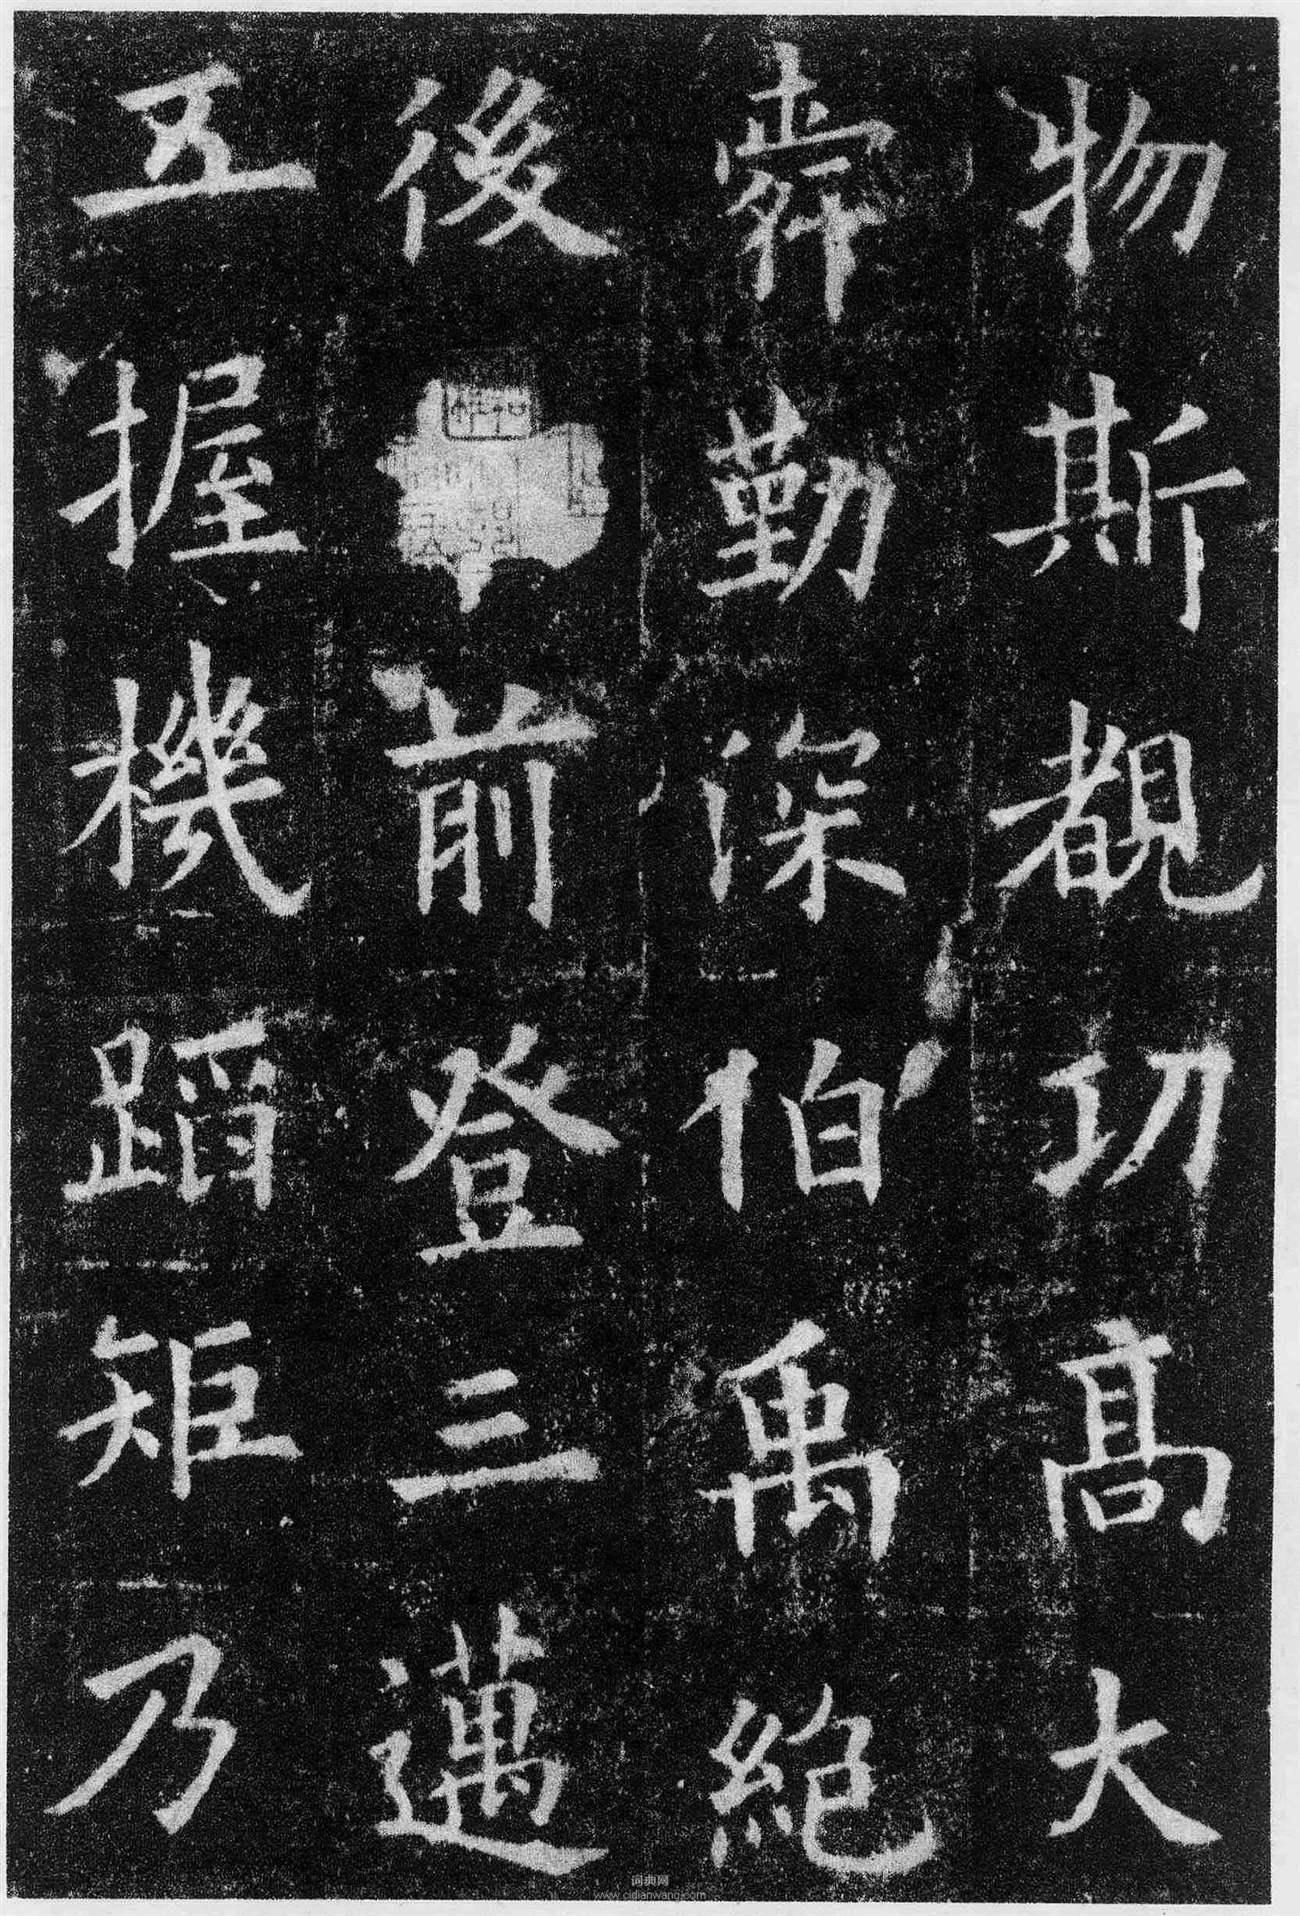 物斯覩功高大
舜勤深伯禹絶
後前登三邁
五握機蹈矩乃
词典网
www.cidianwang.com